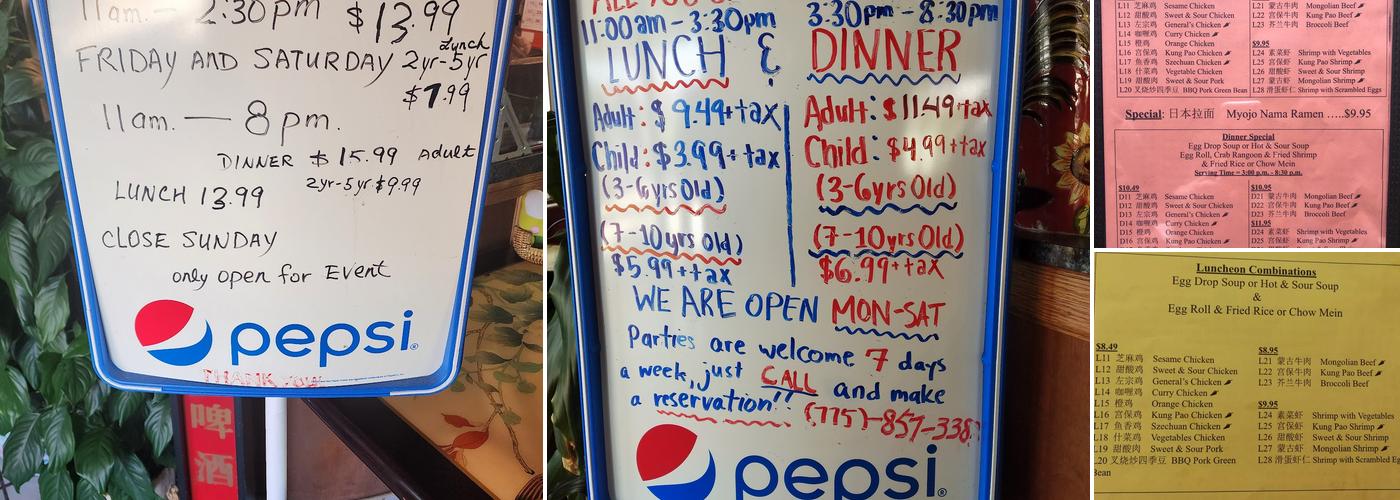 11am. - 2:30pm $13.99
Lunch
FRIDAY AND SATURDAY 2yr-5yr
$7.99
11am. — 8pm.
DINNER $15.99 Adult
2yr-5yr $9.99
LUNCH 13.99
CLOSE SUNDAY
only open for Event
pepsi
THANK YOU
啤
酒
ALL YOU
11:00am-3:30pm 3:30pm-8:30pm
LUNCH & DINNER
Adult: $9.49+tax Adult: $11.49+tax
Child: $3.99+tax Child: $4.99+tax
(3-6yrs Old) (3-6yrs Old)
(7-10yrs Old) (7-10yrs Old)
$5.99++tax $6.99++tax
WE ARE OPEN MON-SAT
Parties are welcome 7 days
a week, just CALL and make
a reservation!!
pepsi
L11 芝麻鸡 Sesame Chicken
L12 甜酸鸡 Sweet & Sour Chicken
L13 左宗鸡 General's Chicken
L14 咖喱鸡 Curry Chicken
L15 橙鸡 Orange Chicken
L16 宫保鸡 Kung Pao Chicken
L17 鱼香鸡 Szechuan Chicken
L18 什菜鸡 Vegetable Chicken
L19 甜酸肉 Sweet & Sour Pork
L20 叉烧炒四季豆 BBQ Pork Green Bean
L21 蒙古牛肉 Mongolian Beef
L22 宫保牛肉 Kung Pao Beef
L23 芥兰牛肉 Broccoli Beef
$9.95
L24 素菜虾 Shrimp with Vegetables
L25 宫保虾 Kung Pao Shrimp
L26 甜酸虾 Sweet & Sour Shrimp
L27 蒙古虾 Mongolian Shrimp
L28 滑蛋虾仁 Shrimp with Scrambled Eggs
Special: 日本拉面 Myojo Nama Ramen …..$9.95
Dinner Special
Egg Drop Soup or Hot & Sour Soup
Egg Roll, Crab Rangoon & Fried Shrimp
& Fried Rice or Chow Mein
Serving Time = 3:00 p.m. - 8:30 p.m.
$10.49
D11 芝麻鸡 Sesame Chicken
D12 甜酸鸡 Sweet & Sour Chicken
D13 左宗鸡 General's Chicken
D14 咖喱鸡 Curry Chicken
D15 橙鸡 Orange Chicken
D16 宫保鸡 Kung Pao Chicken
$10.95
D21 蒙古牛肉 Mongolian Beef
D22 宫保牛肉 Kung Pao Beef
D23 芥兰牛肉 Broccoli Beef
$11.95
D24 素菜虾 Shrimp with Vegetables
D25 宫保虾 Kung Pao Shrimp
Luncheon Combinations
Egg Drop Soup or Hot & Sour Soup
&
Egg Roll & Fried Rice or Chow Mein
$8.49
L11 芝麻鸡 Sesame Chicken
L12 甜酸鸡 Sweet & Sour Chicken
L13 左宗鸡 General's Chicken
L14 咖喱鸡 Curry Chicken
L15 橙鸡 Orange Chicken
L16 宫保鸡 Kung Pao Chicken
L17 鱼香鸡 Szechuan Chicken
L18 什菜鸡 Vegetables Chicken
L19 甜酸肉 Sweet & Sour Pork
L20 叉烧炒四季豆 BBQ Pork Green
Bean
$8.95
L21 蒙古牛肉 Mongolian Beef
L22 宫保牛肉 Kung Pao Beef
L23 芥兰牛肉 Broccoli Beef
$9.95
L24 素菜虾 Shrimp with Vegetables
L25 宫保虾 Kung Pao Shrimp
L26 甜酸虾 Sweet & Sour Shrimp
L27 蒙古虾 Mongolian Shrimp
L28 滑蛋虾仁 Shrimp with Scrambled